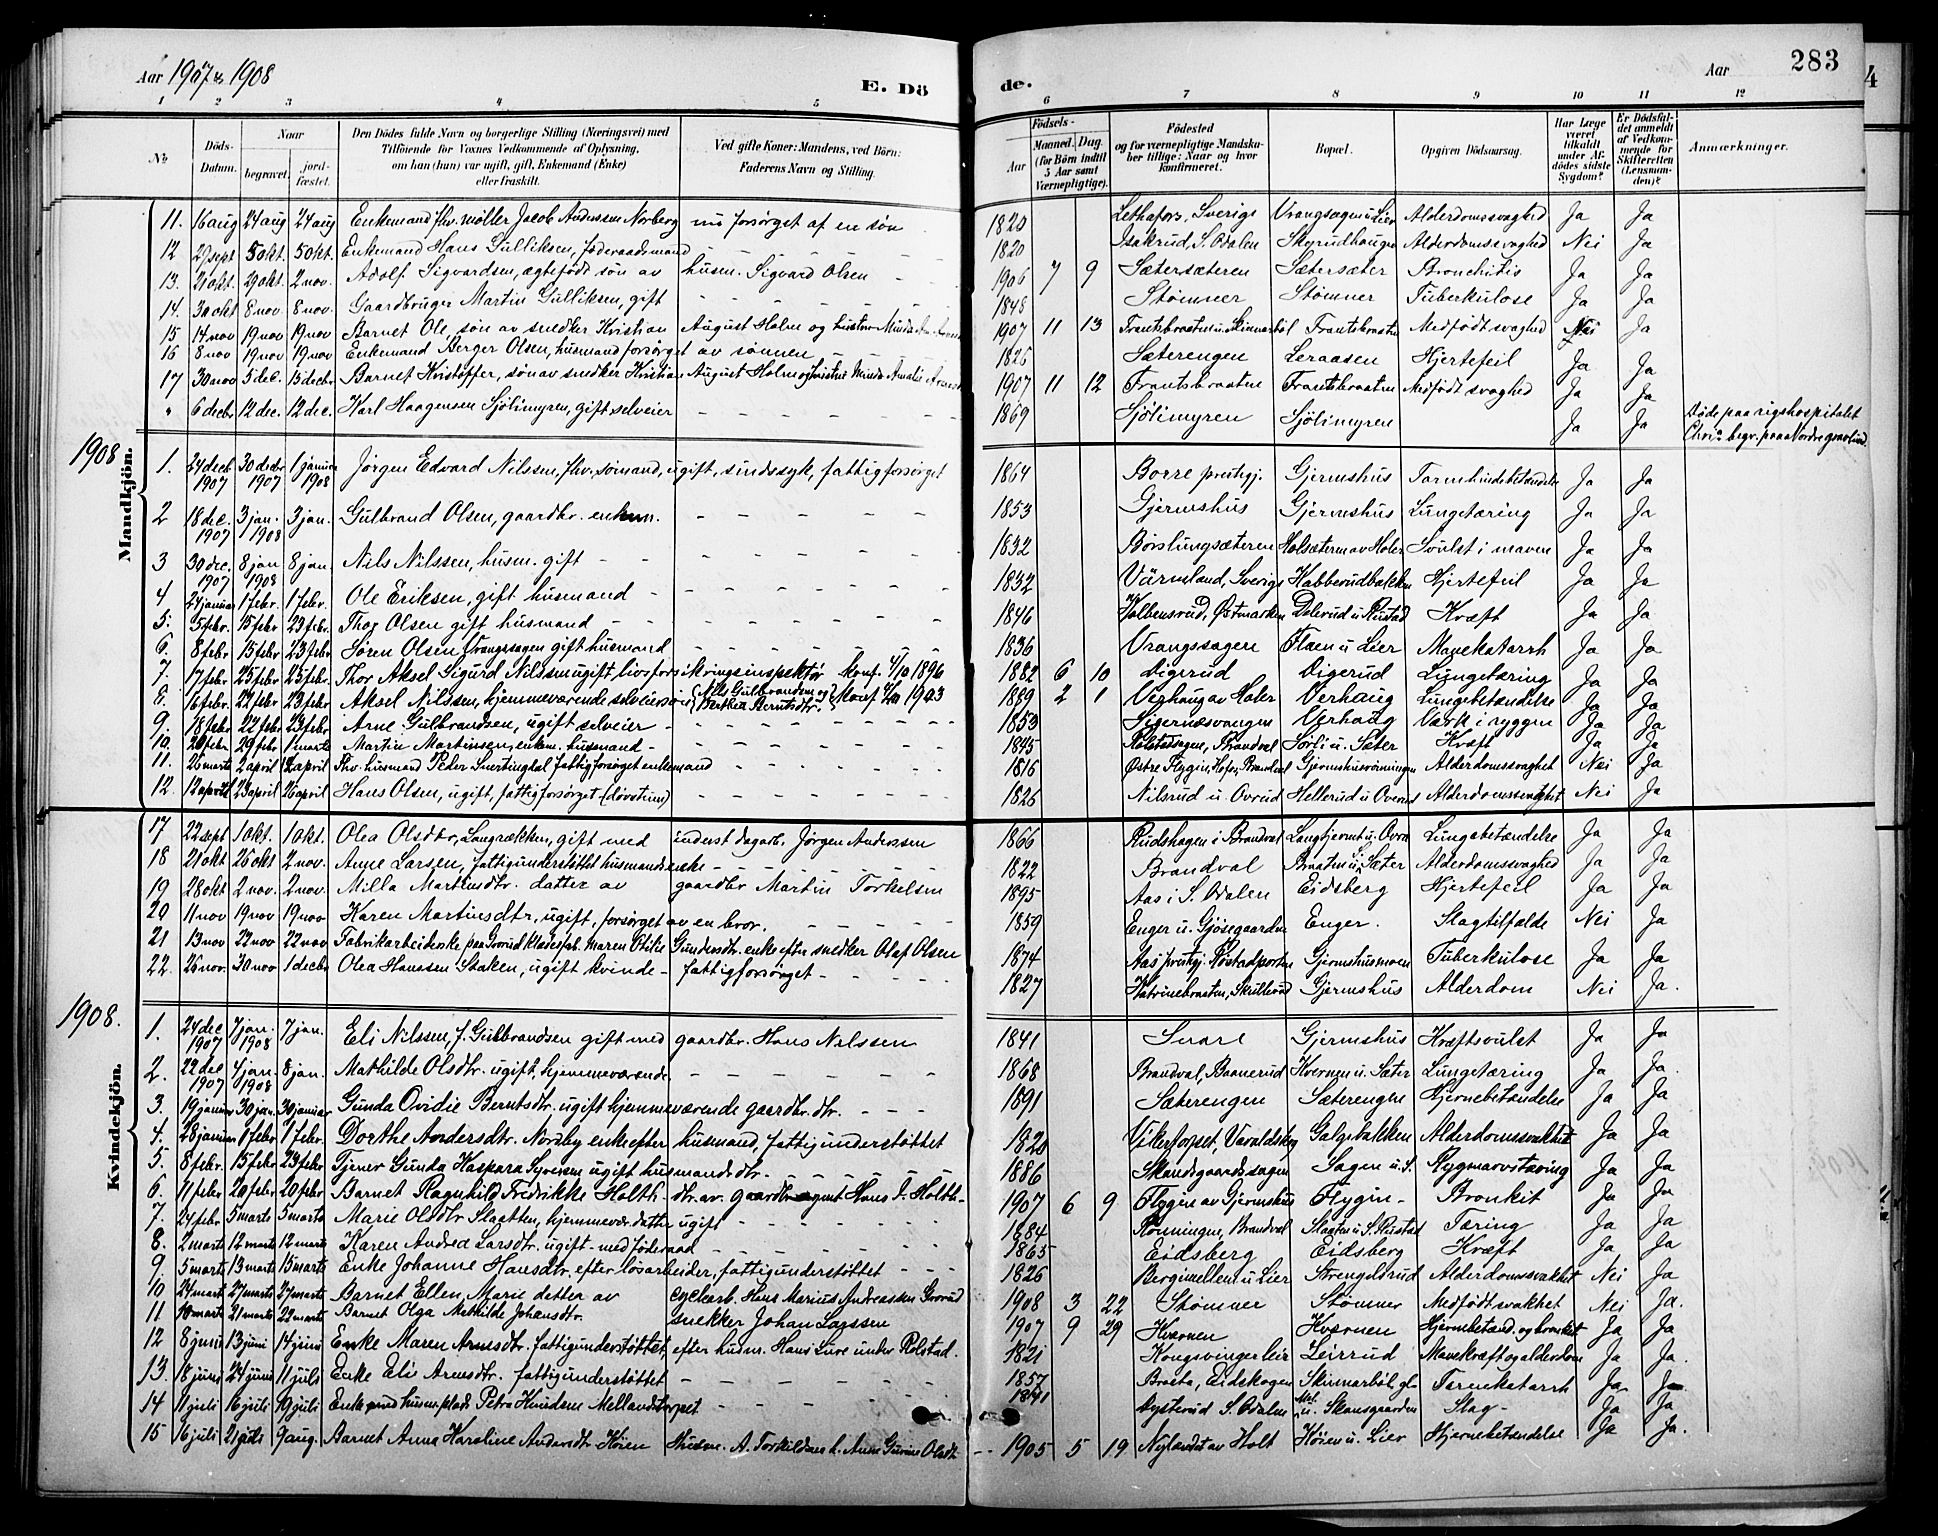 Aar 1907 & 1908
E. Dö
de.
Aar
283
1 2 3 4 5 6 7 8 9 10 11 12
No
Döds-Datum.
Naar
begravet.
jord-fæstet.
Den Dödes fulde Navn og borgerlige Stilling (Næringsvei) med
Tilföiende for Voxnes Vedkommende af Oplysning,
om han (hun) var ugift, gift, Enkemand (Enke)
eller fraskilt.
Ved gifte Koner: Mandens, ved Börn:
Faderens Navn og Stilling.
Födsels-
Aar
Maaned. Dag.
(for Börn indtil
5 Aar samt
Værnepligtige).
Födested
og for værnepligtige Mandska-
ber tillige: Naar og hvor
konfirmeret.
Bopæl.
Opgiven Dödsaarsag.
Har Læge
været
tilkaldt
under Af-
dödes sidste
Sygdom?
Er Dödsfal-
det anmeldt
af Vedkom-
mende for
Skifteretten
(Lensman-
den)?
Anmærkninger.
11. 16 aug 24 aug 24 aug Enkemand fhv. møller Jacob Anderssen Norberg nu forsørget af en søn 1820 Lethafors, Sverige Vrangsagen u. Lier Alderdomssvaghed Ja Ja
12 27 sept 5 okt. 5 okt. Enkemand Hans Gulliksen, føderaadsmand 1820 Isakrud, S. Odalen Skyrudhaugen Alderdomssvaghed Nei Ja
13. 21 okt. 29 okt. 2 nov. Adolf Sigvardsen, ægtefødt søn av husm. Sigvard Olsen 1906 7 9 Sætersæteren Sætersæter Bronchitis Ja Ja
14. 30 okt 8 nov. 8 nov. Gaardbruger Martin Gulliksen, gift 1848 Stømner Stømner Tuberkulose Ja Ja
15 14 nov 19 nov 19 nov Barnet Ole, søn av snedker Kristian August Holm og hustru Minda 1907 11 13 Frantsbraaten u. Skinnarböl Frantsbraaten Medfødt svaghed Nei Ja
16 8 nov 19 nov 19 nov Enkemand Berger Olsen, husmand forsørget av sønnen 1826 Sæterengen Leraasen Hjertefeil Ja Ja
17 30 nov 5 dec. 15 decbr Barnet Kristoffer, søn av snedker Kristian August Holm og hustru Minda Amalie 1907 11 12 Frantsbraaten Frantsbraaten Medfødt svaghed Ja Ja
" 6 decbr 12 dec. 12 dec. Karl Haagensen Sjölimyren, gift selveier 1869 Sjölimyren Sjölimyren Ja Ja Døde paa rigshospitalet
Chria. begr. paa Nordre gravlund.
1908
Mandkjön.
1. 24 decb 1907 30 decbr 1907 1 januar 1908 Jørgen Edvard Nilssen, fhv. sømand, ugift, sindssyk, fattigforsørget 1864 Borre prestegj. Gjermshus Tarmhindebetændelse Ja Ja
2 18 dec. 1907 3 jan. 1908 3 jan. Gulbrand Olsen, gaardbr. enkem. 1853 Gjermshus Gjermshus Lungetæring Ja Ja
3 30 dec. 1907 8 jan 1908 8 jan. Nils Nilssen, husm. gift 1832 Børslungsæteren Holsæteren av Holer Svulst i maven Ja Ja
4 24 januar 1 febr. 1 febr. Ole Eriksen, gift husmand 1832 Värmland, Sverige Habberudbakken Hjertefeil Ja Ja
5. 5 febr. 15 febr 23 febr. Thor Olsen gift husmand 1846 Kolbensrud, Østmarken Delerud u. Rustad Kræft Ja Ja
6. 8 febr 15 febr 23 febr Søren Olsen Vrangssagen gift husmand 1836 Vrangsagen Flaen u Lier Mavekatarrh Ja Ja
7. 17 febr 25 febr 25 febr. Thor Aksel Sigurd Nilssen ugift, livsforsikringsinspektør konf. 4/10 1896 1882 6 10 Digerud Digerud Lungetæring Ja Ja
8. 16 febr. 22 febr 23 febr. Aksel Nilssen, hjemmeværende selveiersøn {Nils Gulbrandsen og Berthea Berntsdtr.} Konf 4/10 1903 1889 2 1 Verhaug av Holer Verhaug Lungebetændelse Ja Ja
9. 18 febr 22 febr 23 febr. Arne Gulbrandsen, ugift selveier 1853 Sigernæsvangen Verhaug Værk i ryggen Ja Ja
10. 20 febr. 29 febr 1 marts Martin Martinssen, enkem. husmand 1845 Rolstadsagen, Brandval Sørli u. Sæter Kræft Ja Ja
11. 26 marts 2 april 12 april Fhv. husmand Peder Snertingdal fattigforsørget enkemand 1816 Østre Flygin, Hofer, Brandval Gjermshusrønningen Alderdomssvaghet Nei Ja
12. 12 april 23 april 26 april Hans Olsen, ugift, fattigforsørget (døvstum) 1826 Nilsrud u. Ovrud Hellerud u Overud Alderdomssvaghet Nei Ja
17 22 sept 1 okt. 1 okt. Olea Olsdtr, Langrækken, gift med inderst dagarb. Jörgen Anderssen 1866 Rudshagen i Brandval Langtjernet u. Ovru Lungebetændelse Ja Ja
18 21 okt 26 okt 2 nov. Anne Larsen, fattigunderstøttet husmandsenke 1822 Brandval Braaten u. Sæter Alderdomssvaghed Ja Ja
19 28 okt 2 nov. 2 nov. Milla Martinsdtr. datter av gaardbr Martin Torkelsen 1895 Aas i S. Odalen Eidsberg Hjertefeil Ja Ja
20 11 nov 19 nov 19 nov Karen Martinsdtr, ugift, forsørget av en bror. 1859 Enger u. Gjøsegaarden Enger. Slagtilfælde Nei Ja
21 13 nov 22 nov 22 nov Fabrikarbeiderske paa Grorud klædesfab. Maren Otilie Gundersdtr. enke efter snedker Olaf Olsen 1874 Aas prestegj. Røstadporten Gjermshusmoen Tuberkulose Ja Ja
22. 26 nov. 30 nov 1 decbr Olea Hanssen Staken, ugift kvinde fattigforsørget 1827 Katrinebraaten, Skullerud Gjermshus Alderdom Nei Ja.
1908.
Kvindekjön.
1. 24 dec 1907 7 jan. 1908 7 jan. Eli Nilssen, f. Gulbrandsen gift med gaardbr. Hans Nilssen 1841 Snare Gjermshus Kræftsvulst Ja Ja
2. 22 dec 1907 4 jan. 1908 8 jan. Mathilde Olsdtr. ugift, hjemmeværende 1868 Brandval, Baanerud Kvernen u. Sæter Lungetæring Ja Ja
3. 19 januar 30 jan. 30 januar Gunda Ovidie Berntsdtr. ugift hjemmeværende gaardbr. dtr. 1891 Sæterengen Sæterengen Hjernebetændelse Ja Ja
4. 28 januar 1 febr. 1 febr. Dorthe Andersdtr. Nordby enke efter husmand, fattigunderstøttet 1820 Vikertorpet, Varaldskog Galgebakken Alderdomssvakhet Ja Ja
5. 8 febr. 15 febr 23 febr Tjener Gunda Kaspara Syversen ugift husmands dtr. 1886 Skandsgaardssagen Sagen u. S. Rygmarvstæring Ja Ja
6. 11 febr 20 febr 20 febr. Barnet Ragnhild Fredrikke Holth dtr. av gaardbr. Hans J. Holth 1907 6 9 Flygin av Gjermshus Flygin Bronkit Ja Ja
7. 24 febr. 5 marts 5 marts Marie Olsdtr Slaatten, hjemmevær. datter ugift 1884 Rønningen, Brandval Slaaten u. S. Rustad Tæring Ja Ja
8. 2 marts 12 marts 12 marts Karen Andrea Larsdtr. ugift med føderaad 1865 Eidsberg Eidsberg Kræft Ja Ja
9 5 marts 13 marts 15 marts Enke Johanne Hansdtr. efter løsarbeider, fattigunderstøttet 1826 Bergimellem u Lier Strengelsrud Alderdomssvakhet Nei Ja
10 24 mart 27 marts 27 marts Barnet Ellen Marie detter av cyclearb. Hans Marius Andreassen Grorud 1908 3 22 Stømner Stømner Medfødt svakhet Nei Ja.
11 10 marts 21 marts 22 marts Barnet Olga Mathilde Johansdtr. snekker Johan Larssen 1907 9 29 Kværnen Kværnen Hjernebetænd. og bronkit Ja Ja
12 8 juni 13 juni 14 juni Enke Maren Arnesdtr. fattigunderstøttet, efter husm. Hans Lure under Rolstad. 1821 Kongsvinger leir Leirrud Mavekræft og alderdom Ja Ja.
13. 18 juni 24 juni 11 juli Enke Eli Arnesdtr. fattigunderstøttet 1857 Braata, Eidskogen Skinnarböl, gl. Tarmkatarrh Ja Ja
14 11 juli 16 juli 19 juli Enke Petra Knudsen Mellandstorpet 1841 Dysterud S. Odalen u. Skansgaarden Slag Ja Ja
15 16 juli 21 juli 9 aug. Barnet Anna Karoline Andersdtr Høien Husm. A. Torkildsen h. Anne Gurine Olsdt. 1905 5 19 Nylandet av Holt Høien u. Lier Hjernebetændelse Ja Ja.